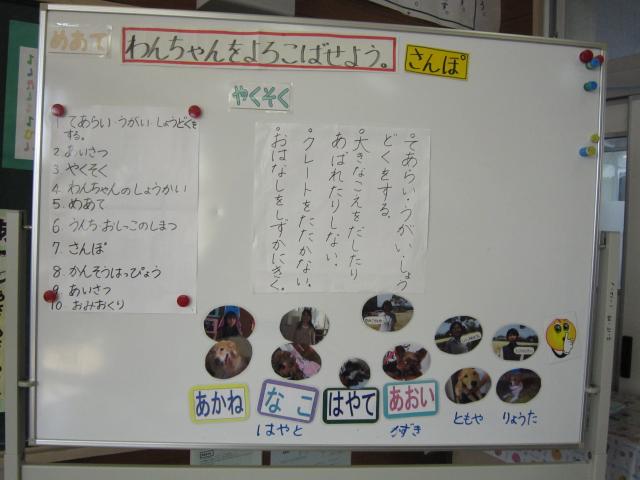 めあて
わんちゃんをよろこばせよう。
さんぽ
やくそく
1 てあらい・うがい・しょうどくを
する。
2. あいさつ
3. やくそく
4. わんちゃんのしょうかい
5. めあて
6. うんち おしっこのしまつ
7. さんぽ
8. かんそうはっぴょう
9. あいさつ
10 おみおくり
。てあらい・うがい・しょう
どくをする。
。大きなこえをだしたり
あばれたりしない。
。クレートをたたかない。
。おはなしをしずかにきく。
あかね
なこ
はやて
あおい
ともや
りょうた
はやと